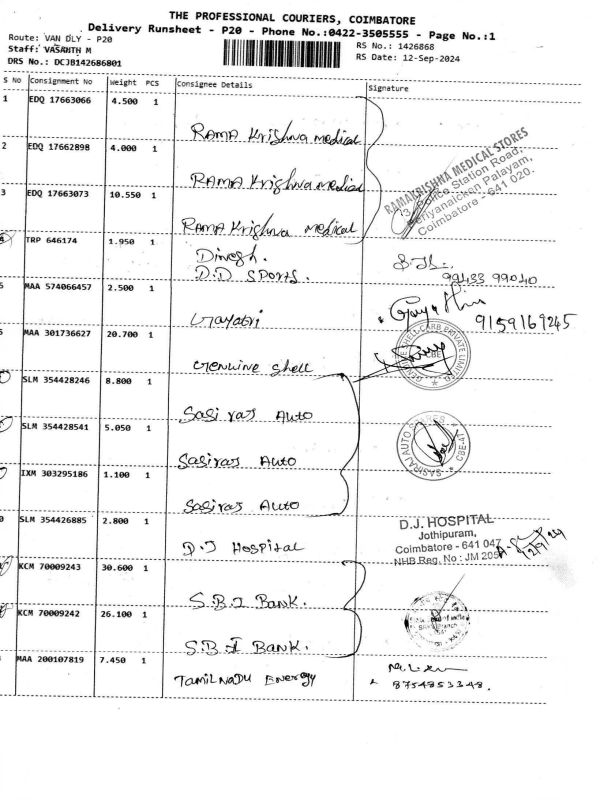 THE PROFESSIONAL COURIERS, COIMBATORE
Delivery Runsheet - P20 - Phone No.:0422-3505555 - Page No.:1
Route: VAN DLY - P20
Staff: VASANTH M
DRS No.: DCJB142686801
RS No.: 1426868
RS Date: 12-Sep-2024
S No Consignment No Weight PCS Consignee Details Signature
1 EDQ 17663066 4.500 1
RAMA Krishna Medical
2 EDQ 17662898 4.000 1
RAMA Krishna Medical
3 EDQ 17663073 10.550 1
RAMA Krishna Medical
RAMAKRISHNA MEDICAL STORES
Police Station Road,
Periyanaicken Palayam,
Coimbatore - 641 020.
TRP 646174 1.950 1
Dinesh.
D.D SPORTS.
99433 99040
MAA 574066457 2.500 1
Gayatri
9159169245
MAA 301736627 20.700 1
Genuine Shell
SHELL-CARB PRIVATE LIMITED
CBE
SLM 354428246 8.800 1
Sasi raj Auto
SLM 354428541 5.050 1
Sasiraj Auto
IXM 303295186 1.100 1
Sasiraj Auto
SASIRAJ AUTO SPARES
CBE-4
SLM 354426885 2.800 1
D.J Hospital
D.J. HOSPITAL
Jothipuram,
Coimbatore - 641 047
NHB Reg. No : JM 205
12/9/24
KCM 70009243 30.600 1
S.B.I Bank.
KCM 70009242 26.100 1
S.B.I Bank.
MAA 200107819 7.450 1
TAMILNADU Energy
8754853348.